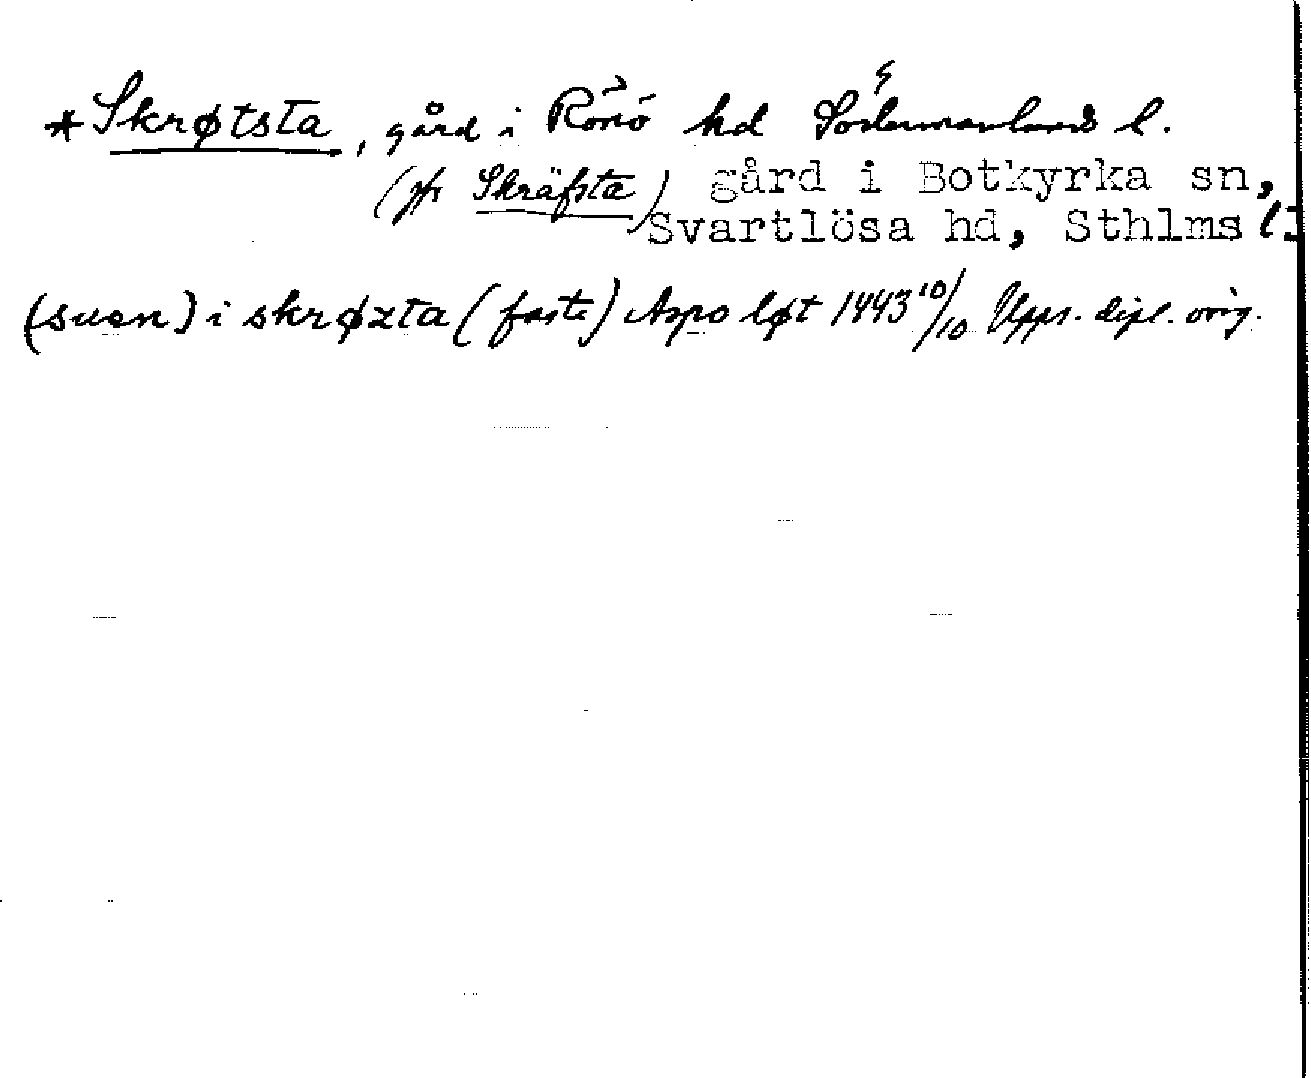 *Skrøtsta, gård i Rönö hd Södermanlands l.
(jfr Skräfsta) gård i Botkyrka sn,
Svartlösa hd, Sthlms l
(suen) i skrøzta (faste) Aspo løt 1443 10/10 Upps. dipl. orig.